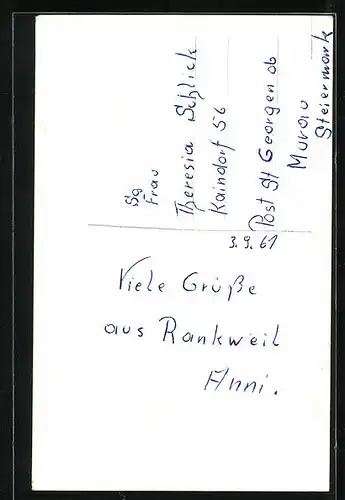 Sg
Frau
Theresia Schlick
Kaindorf 56
Post St Georgen ob
Murau
Steiermark
3.9.61
Viele Grüße
aus Rankweil
Anni.